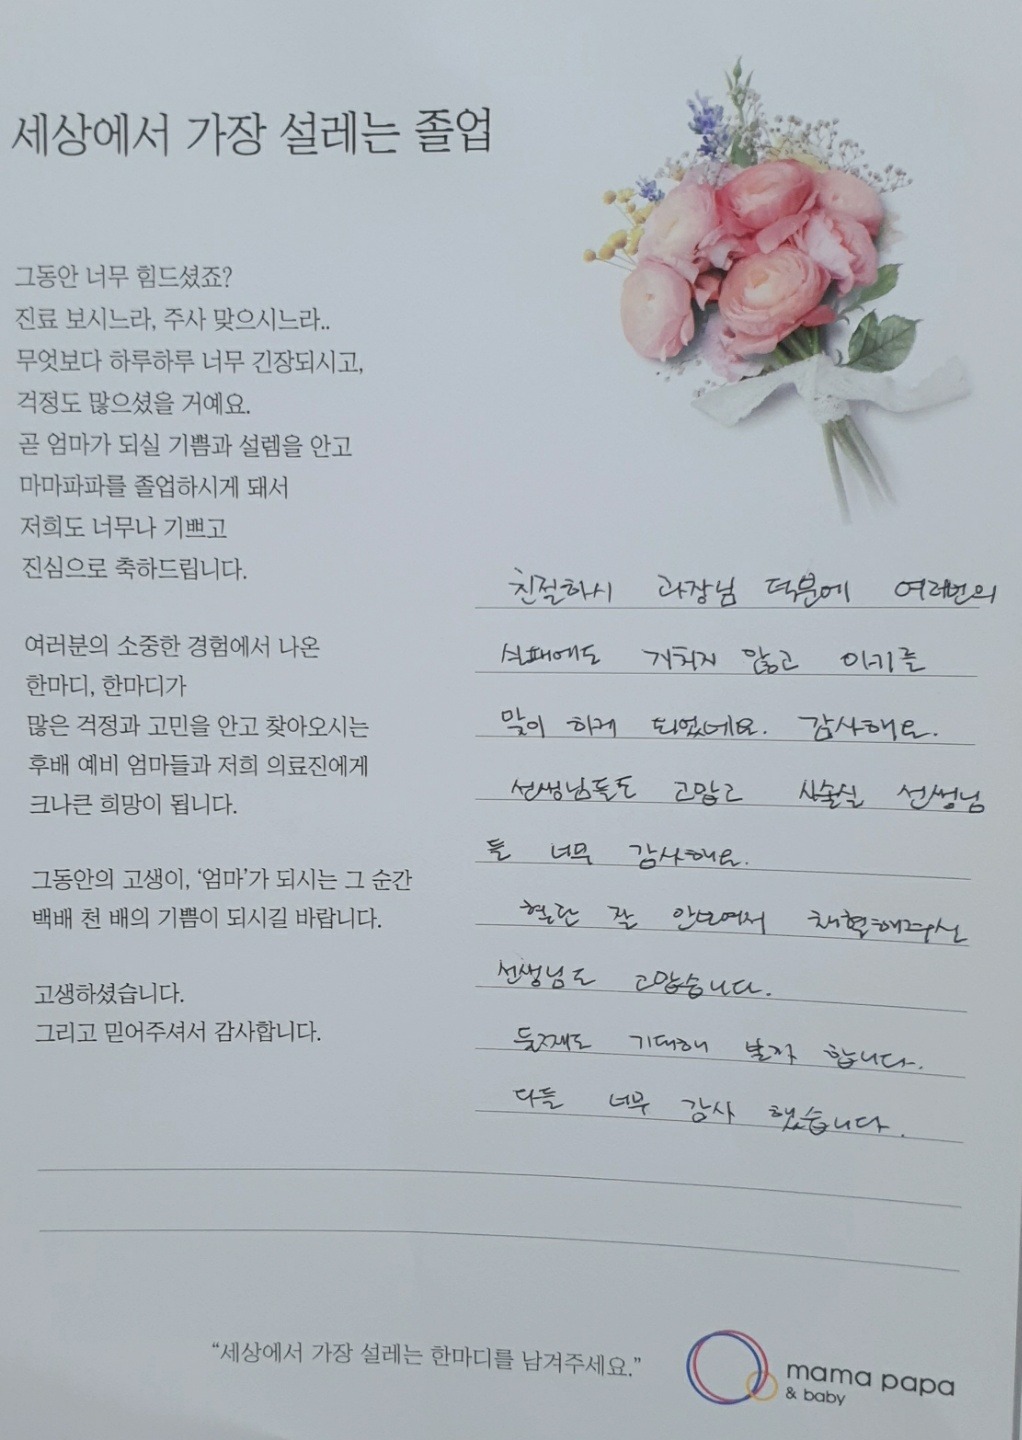 세상에서 가장 설레는 졸업
그동안 너무 힘드셨죠?
진료 보시느라, 주사 맞으시느라..
무엇보다 하루하루 너무 긴장되시고,
걱정도 많으셨을 거예요.
곧 엄마가 되실 기쁨과 설렘을 안고
마마파파를 졸업하시게 돼서
저희도 너무나 기쁘고
진심으로 축하드립니다.
여러분의 소중한 경험에서 나온
한마디, 한마디가
많은 걱정과 고민을 안고 찾아오시는
후배 예비 엄마들과 저희 의료진에게
크나큰 희망이 됩니다.
그동안의 고생이, ‘엄마’가 되시는 그 순간
백배 천 배의 기쁨이 되시길 바랍니다.
고생하셨습니다.
그리고 믿어주셔서 감사합니다.
친절하시 과장님 덕분에 여러번의
실패에도 지치지 않고 아기를
많이 하게 되었네요. 감사해요.
선생님들도 고맙고 시술실 선생님
들 너무 감사해요.
혈관 잘 안보여서 채혈해주신
선생님도 고맙습니다.
둘째도 기대해 볼까 합니다.
다들 너무 감사 했습니다.
“세상에서 가장 설레는 한마디를 남겨주세요.”
mama papa
& baby